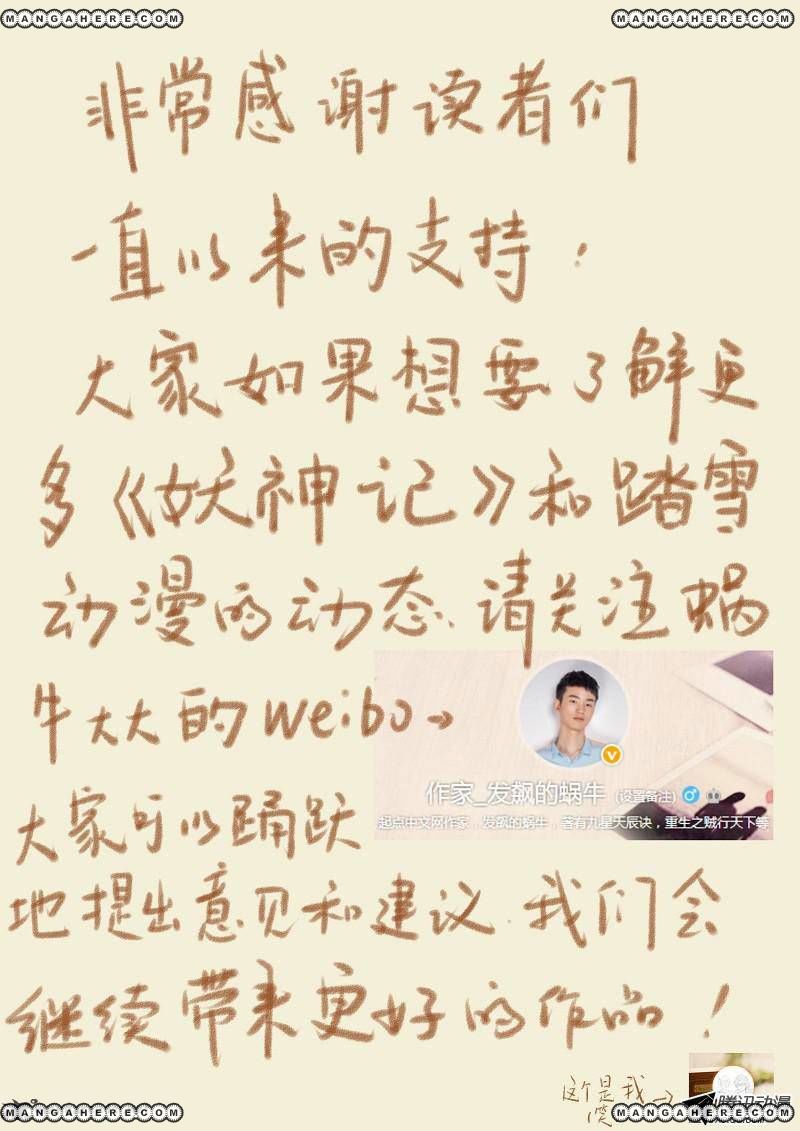 MANGAHERE.COM MANGAHERE.COM
非常感谢读者们
一直以来的支持！
大家如果想要了解更
多《妖神记》和踏雪
动漫的动态、请关注蜗
牛大大的weibo→
作家_发飙的蜗牛 (设置备注)
起点中文网作家，发飙的蜗牛，著有九星天辰诀，重生之贼行天下等
大家可以踊跃
地提出意见和建议.我们会
继续带来更好的作品！
这个是我→
笑
腾讯动漫
MANGAHERE.COM MANGAHERE.COM